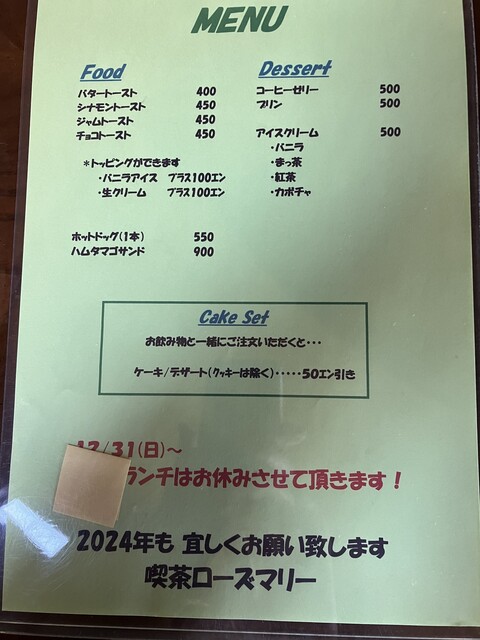 MENU
Food
バタートースト 400
シナモントースト 450
ジャムトースト 450
チョコトースト 450
*トッピングができます
・バニラアイス プラス100エン
・生クリーム プラス100エン
ホットドッグ(1本) 550
ハムタマゴサンド 900
Dessert
コーヒーゼリー 500
プリン 500
アイスクリーム 500
・バニラ
・まっ茶
・紅茶
・カボチャ
Cake Set
お飲み物と一緒にご注文いただくと・・・
ケーキ/デザート(クッキーは除く)・・・・・50エン引き
12/31(日)～
ランチはお休みさせて頂きます!
2024年も 宜しくお願い致します
喫茶ローズマリー